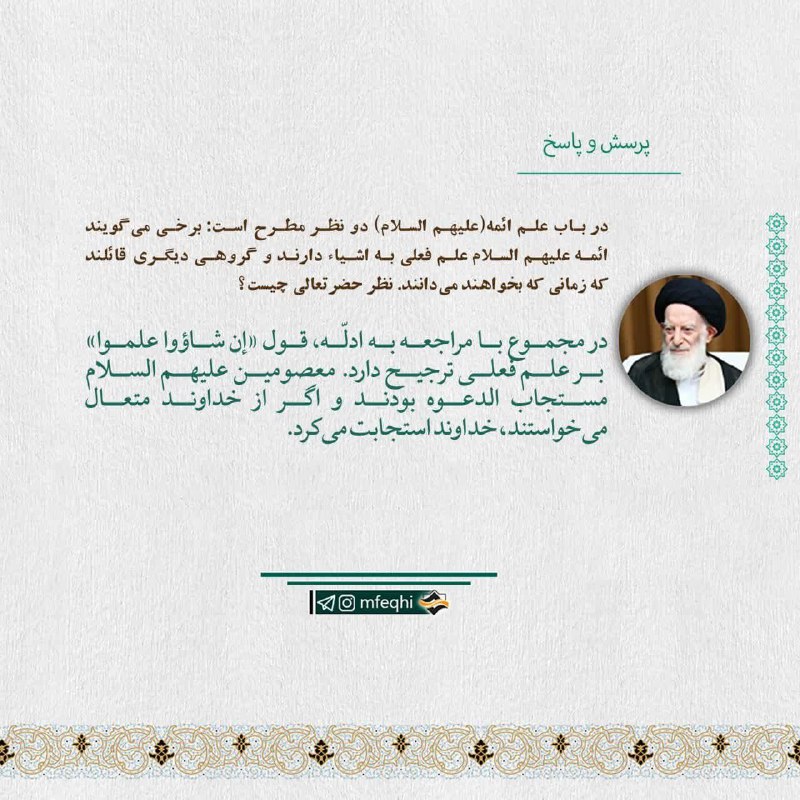 پرسش و پاسخ
در باب علم ائمه(علیهم السلام) دو نظر مطرح است: برخی می‌گویند
ائمه علیهم السلام علم فعلی به اشیاء دارند و گروهی دیگری قائلند
که زمانی که بخواهند می‌دانند. نظر حضرتعالی چیست؟
در مجموع با مراجعه به ادلّه، قول «إن شاؤوا علموا»
بر علم فعلی ترجیح دارد. معصومین علیهم السلام
مستجاب الدعوه بودند و اگر از خداوند متعال
می‌خواستند، خداوند استجابت می‌کرد.
mfeqhi